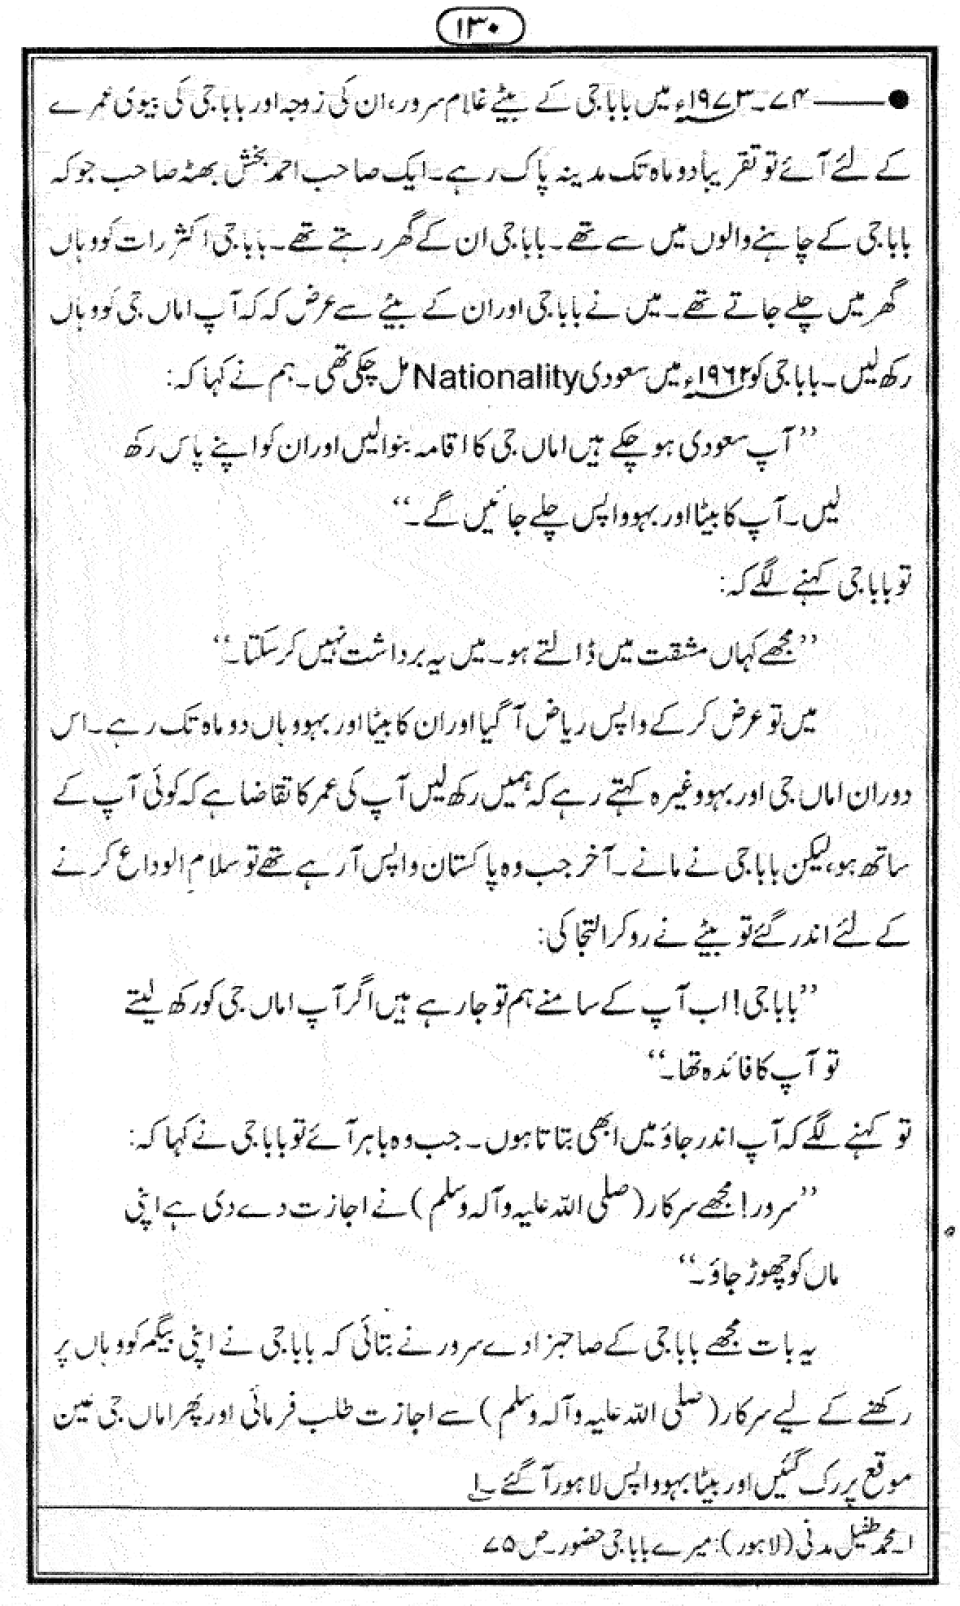 ۱۳۰
● ——— ۷۴۔۱۹۷۳ء میں بابا جی کے بیٹے غلام سرور، ان کی زوجہ اور بابا جی کی بیوی عمرے
کے لئے آئے تو تقریباً دو ماہ تک مدینہ پاک رہے۔ ایک صاحب احمد بخش بھٹہ صاحب جو کہ
بابا جی کے چاہنے والوں میں سے تھے۔ بابا جی ان کے گھر رہتے تھے۔ بابا جی اکثر رات کو وہاں
گھر میں چلے جاتے تھے۔ میں نے بابا جی اور ان کے بیٹے سے عرض کہ کہ آپ اماں جی کو وہاں
رکھ لیں۔ بابا جی کو ۱۹۶۲ء میں سعودی Nationality مل چکی تھی۔ ہم نے کہا کہ:
’’آپ سعودی ہو چکے ہیں اماں جی کا اقامہ بنوا لیں اور ان کو اپنے پاس رکھ
لیں۔ آپ کا بیٹا اور بہو واپس چلے جائیں گے۔‘‘
تو بابا جی کہنے لگے کہ:
’’مجھے کہاں مشقت میں ڈالتے ہو۔ میں یہ برداشت نہیں کر سکتا۔‘‘
میں تو عرض کر کے واپس ریاض آ گیا اور ان کا بیٹا اور بہو وہاں دو ماہ تک رہے۔ اس
دوران اماں جی اور بہو وغیرہ کہتے رہے کہ ہمیں رکھ لیں آپ کی عمر کا تقاضا ہے کہ کوئی آپ کے
ساتھ ہو، لیکن بابا جی نے مانے۔ آخر جب وہ پاکستان واپس آ رہے تھے تو سلامِ الوداع کرنے
کے لئے اندر گئے تو بیٹے نے رو کر التجا کی:
’’بابا جی! اب آپ کے سامنے ہم تو جا رہے ہیں اگر آپ اماں جی کو رکھ لیتے
تو آپ کا فائدہ تھا۔‘‘
تو کہنے لگے کہ آپ اندر جاؤ میں ابھی بتاتا ہوں۔ جب وہ باہر آئے تو بابا جی نے کہا کہ:
’’سرور! مجھے سرکار (صلی اللہ علیہ وآلہ وسلم) نے اجازت دے دی ہے اپنی
ماں کو چھوڑ جاؤ۔‘‘
یہ بات مجھے بابا جی کے صاحبزادے سرور نے بتائی کہ بابا جی نے اپنی بیگم کو وہاں پر
رکھنے کے لیے سرکار (صلی اللہ علیہ وآلہ وسلم) سے اجازت طلب فرمائی اور پھر اماں جی عین
موقع پر رک گئیں اور بیٹا بہو واپس لاہور آ گئے۔۱
۱۔ محمد طفیل مدنی (لاہور): میرے بابا جی حضور۔ ص ۷۵